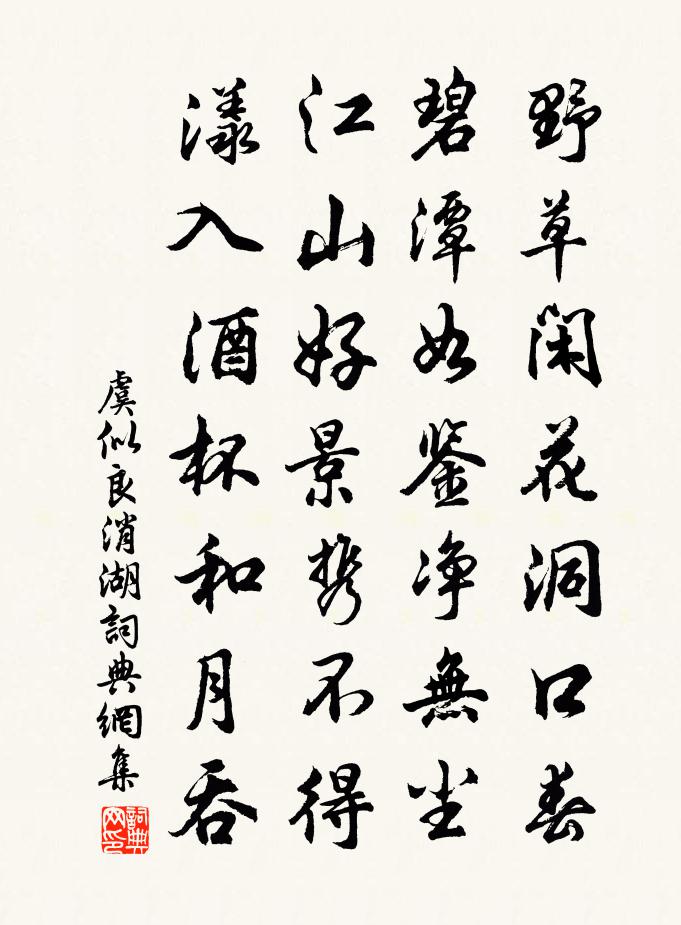 野草闲花洞口春
碧潭如鉴净無尘
江山好景携不得
漾入酒杯和月吞
虞似良消湖詞典網集
詞典网印